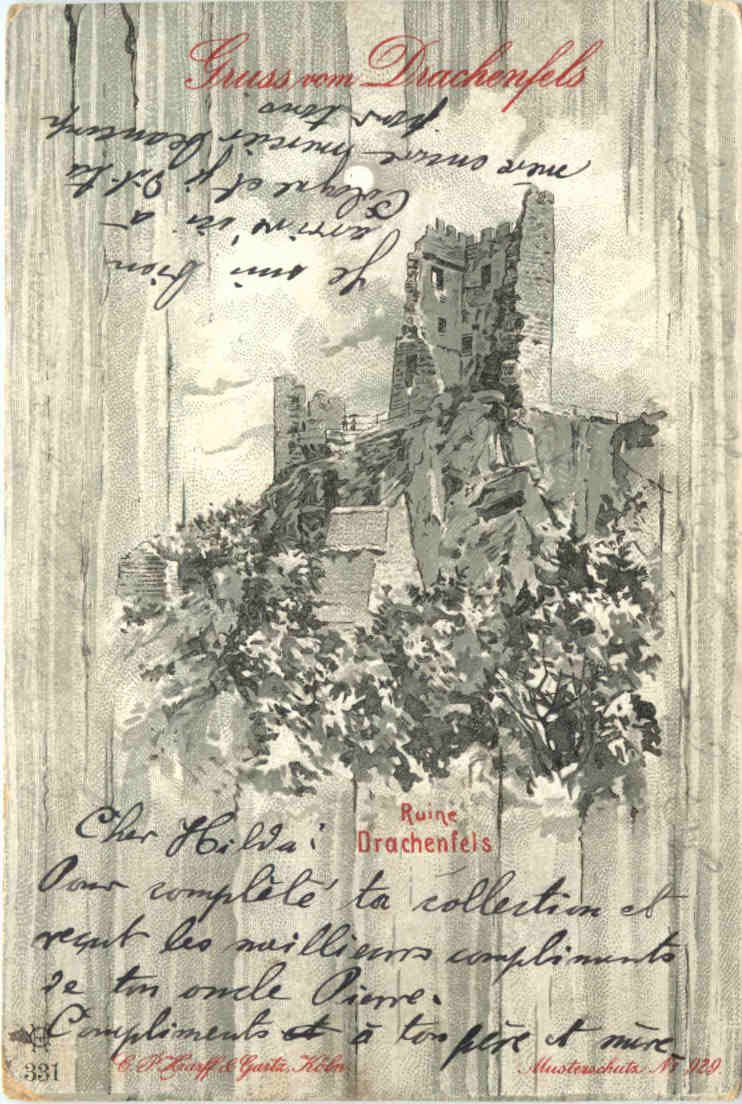 Gruss vom Drachenfels
Je suis bien
arrivé ici à
Cologne et je Dit ta
mère encore merciés beaucoup
pour tous
Ruine
Drachenfels
Cher Hilda!
Pour complèté ta collection et
reçut les meillieurs compliments
de ton oncle Pierre.
Compliments et à ton père et mère
331 Harff & Gartz, Köln. Musterschutz Nº 929.